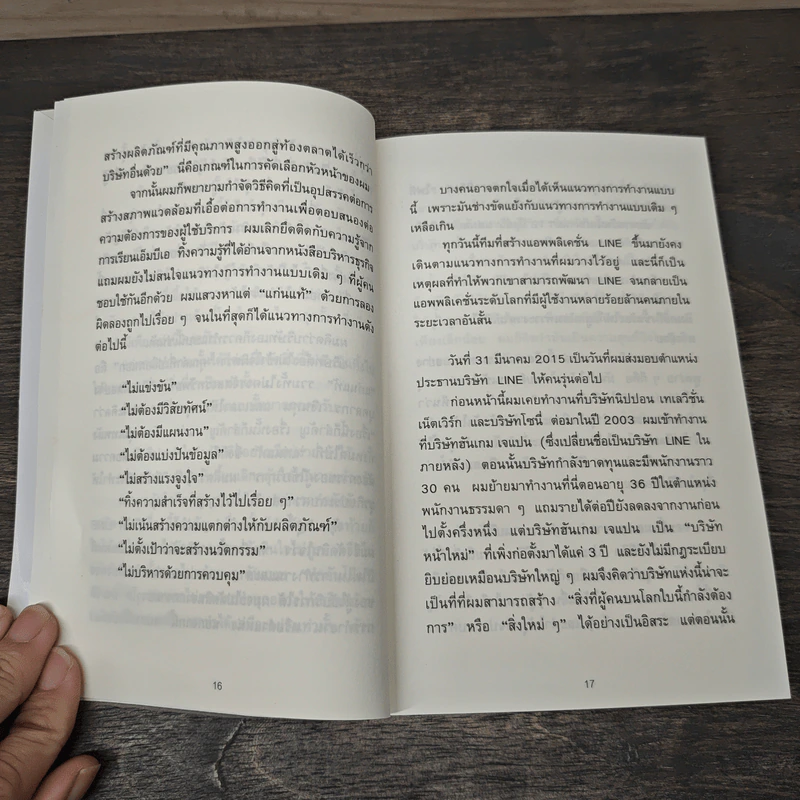 สร้างผลิตภัณฑ์ที่มีคุณภาพสูงออกสู่ท้องตลาดได้เร็วกว่า
บริษัทอื่นด้วย” นี่คือเกณฑ์ในการคัดเลือกหัวหน้าของผม
จากนั้นผมก็พยายามกำจัดวิธีคิดที่เป็นอุปสรรคต่อการ
สร้างสภาพแวดล้อมที่เอื้อต่อการทำงานเพื่อตอบสนองต่อ
ความต้องการของผู้ใช้บริการ ผมเลิกยึดติดกับความรู้จาก
การเรียนเอ็มบีเอ ทิ้งความรู้ที่ได้อ่านจากหนังสือบริหารธุรกิจ
แถมผมยังไม่สนใจแนวทางการทำงานแบบเดิม ๆ ที่ผู้คน
ชอบใช้กันอีกด้วย ผมแสวงหาแต่ “แก่นแท้” ด้วยการลอง
ผิดลองถูกไปเรื่อย ๆ จนในที่สุดก็ได้แนวทางการทำงานดัง
ต่อไปนี้
“ไม่แข่งขัน”
“ไม่ต้องมีวิสัยทัศน์”
“ไม่ต้องมีแผนงาน”
“ไม่ต้องแบ่งปันข้อมูล”
“ไม่สร้างแรงจูงใจ”
“ทิ้งความสำเร็จที่สร้างไว้ไปเรื่อย ๆ”
“ไม่เน้นสร้างความแตกต่างให้กับผลิตภัณฑ์”
“ไม่ตั้งเป้าว่าจะสร้างนวัตกรรม”
“ไม่บริหารด้วยการควบคุม”
16
บางคนอาจตกใจเมื่อได้เห็นแนวทางการทำงานแบบ
นี้ เพราะมันช่างขัดแย้งกับแนวทางการทำงานแบบเดิม ๆ
เหลือเกิน
ทุกวันนี้ทีมที่สร้างแอพพลิเคชั่น LINE ขึ้นมายังคง
เดินตามแนวทางการทำงานที่ผมวางไว้อยู่ และนี่ก็เป็น
เหตุผลที่ทำให้พวกเขาสามารถพัฒนา LINE จนกลายเป็น
แอพพลิเคชั่นระดับโลกที่มีผู้ใช้งานหลายร้อยล้านคนภายใน
ระยะเวลาอันสั้น
วันที่ 31 มีนาคม 2015 เป็นวันที่ผมส่งมอบตำแหน่ง
ประธานบริษัท LINE ให้คนรุ่นต่อไป
ก่อนหน้านี้ผมเคยทำงานที่บริษัทนิปปอน เทเลวิชั่น
เน็ตเวิร์ก และบริษัทโซนี่ ต่อมาในปี 2003 ผมเข้าทำงาน
ที่บริษัทฮันเกม เจแปน (ซึ่งเปลี่ยนชื่อเป็นบริษัท LINE ใน
ภายหลัง) ตอนนั้นบริษัทกำลังขาดทุนและมีพนักงานราว
30 คน ผมย้ายมาทำงานที่นี่ตอนอายุ 36 ปีในตำแหน่ง
พนักงานธรรมดา ๆ แถมรายได้ต่อปียังลดลงจากงานก่อน
ไปตั้งครึ่งหนึ่ง แต่บริษัทฮันเกม เจแปน เป็น “บริษัท
หน้าใหม่” ที่เพิ่งก่อตั้งมาได้แค่ 3 ปี และยังไม่มีกฎระเบียบ
ยิบย่อยเหมือนบริษัทใหญ่ ๆ ผมจึงคิดว่าบริษัทแห่งนี้น่าจะ
เป็นที่ที่ผมสามารถสร้าง “สิ่งที่ผู้คนบนโลกใบนี้กำลังต้อง
การ” หรือ “สิ่งใหม่ ๆ” ได้อย่างเป็นอิสระ แต่ตอนนั้น
17